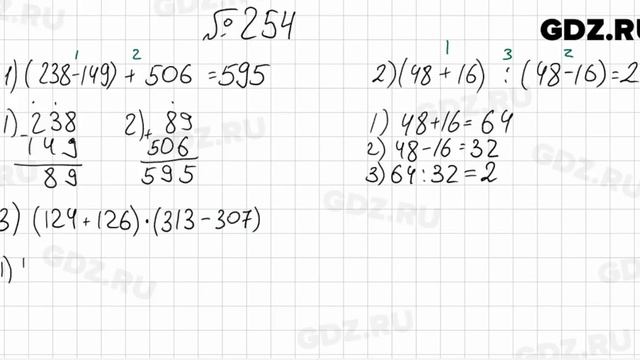 № 254
GDZ.RU
1) (238-149) + 506 = 595
1) 238
- 149
89
2) 89
+ 506
595
2) (48+16) : (48-16) = 2
1) 48+16=64
2) 48-16=32
3) 64:32=2
3) (124+126)·(313-307)
1)